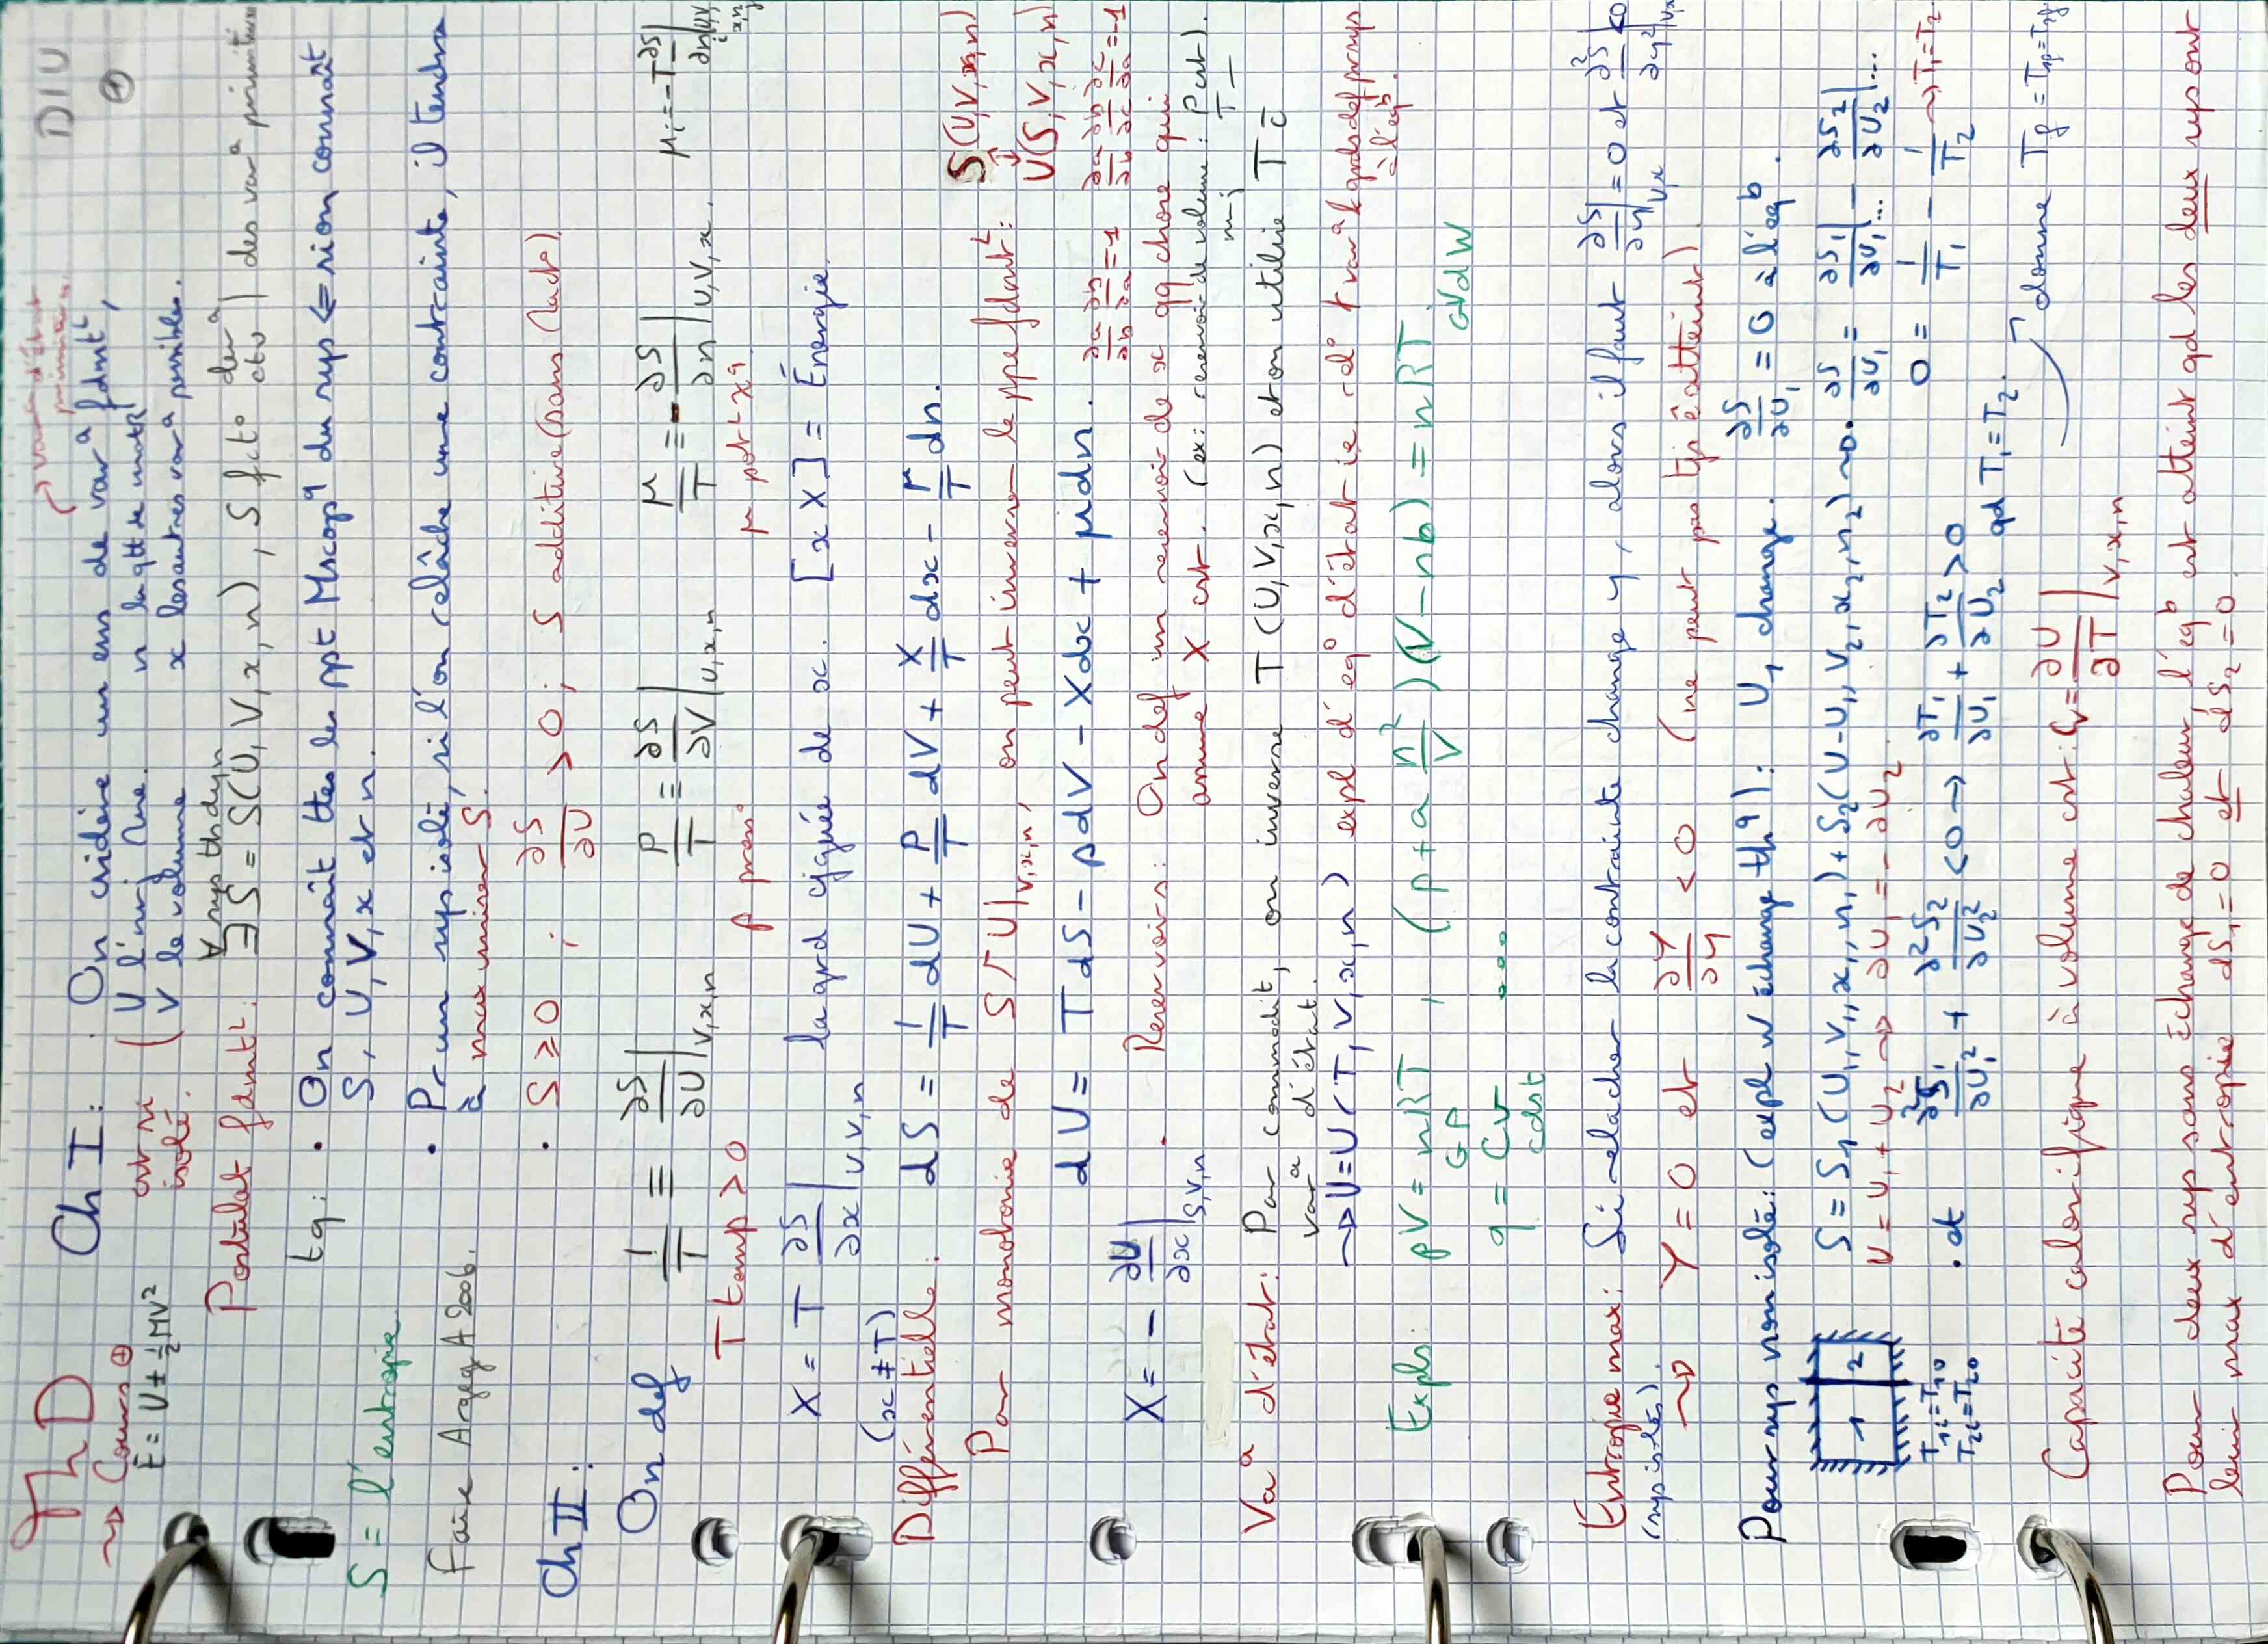 ThD
DIU
①
→ Cours ⊕
E = U + ½MV²
Ch I : On cidère un ens de varᵃ fdmtᵗ,
var d'état primitives
U l'énrj Rne. n la qtt de matR
V le volume x les autres varᵃ possibles.
ouvr ni isolé.
Postulat fdamtᵗ: ∀ sys thdyn ∃ S = S(U, V, x, n), S fctº der ctu | des varᵃ primitives
tq: • On connaît ttes les ppt Mscopq du sys ⇐ si on connaît
S, U, V, x et n.
S = l'entropie
• Pr un sys isolé, si l'on relâche une contrainte, il tendra
à maximiser S.
Faire Argeg A 2006.
• S ≥ 0 ; ∂S/∂U > 0 ; S additive (sans)
Ch II :
On def 1/T ≡ ∂S/∂U|V,x,n P/T ≡ ∂S/∂V|U,x,n μ/T ≡ -∂S/∂n|U,V,x. μi = -T ∂S/∂ni|U,V, x,nj
T temp > 0 p press. μ potᵗ xq.
X = T ∂S/∂x|U,V,n la grd cjguée de x. [x X] = Énergie.
(x ≠ T)
Différentielle : dS = 1/T dU + P/T dV + X/T dx - μ/T dn.
Par monotonie de S / U|V,x,n, on peut inverser le ppe fdamtᵗ: S(U,V,x,n)
U(S,V,x,n)
dU = T dS - p dV - X dx + μ dn. ∂a/∂b ∂b/∂a = 1 ∂a/∂b ∂b/∂c ∂c/∂a = -1
X = - ∂U/∂x|S,V,n . Reservoirs: On def un reservoir de x qq chose qui
assure X cst. (ex: reservoir de volume: P cst).
Vaᵃ d'état: Par commodit, on inverse T(U,V,x,n) et on utilise T c̄
varᵃ d'état.
→ U = U(T, V, x, n) expl d'eqº d'état ie relº
à l'eqᵇ.
Expls: pV = nRT, (p + a n²/V²)(V - nb) = nRT
GP GVdW
q = CV
cdst
Entropie max: Si relacher la contrainte change y, alors il faut ∂S/∂y|U,x = 0 et ∂²S/∂y²|U,x < 0
(sys isolés)
→ Y = 0 et ∂Y/∂y < 0 (ne peut pas tjs ê atteint).
Pour sys non isolé: (expl w échange thq): U₁ change. ∂S/∂U₁ = 0 à l'eqᵇ.
1 2
S = S₁(U₁, V₁, x₁, n₁) + S₂(U-U₁, V₂, x₂, n₂) → ∂S/∂U₁ = ∂S₁/∂U₁|... - ∂S₂/∂U₂|...
U = U₁ + U₂ → ∂U₁ = -∂U₂. 0 = 1/T₁ - 1/T₂ → T₁ = T₂
T₁ᵢ = T₁₀
T₂ᵢ = T₂₀
• dt ∂²S₁/∂U₁² + ∂²S₂/∂U₂² < 0 → ∂T₁/∂U₁ + ∂T₂/∂U₂ > 0 qd T₁ = T₂.
Capacité calorifique à volume cst: Cv = ∂U/∂T|V,x,n donne Tf = T₁f = T₂f
Pour deux sys sans échange de chaleur, l'eqᵇ est atteint qd les deux sys ont
leur max d'entropie dS₁ = 0 et dS₂ = 0.